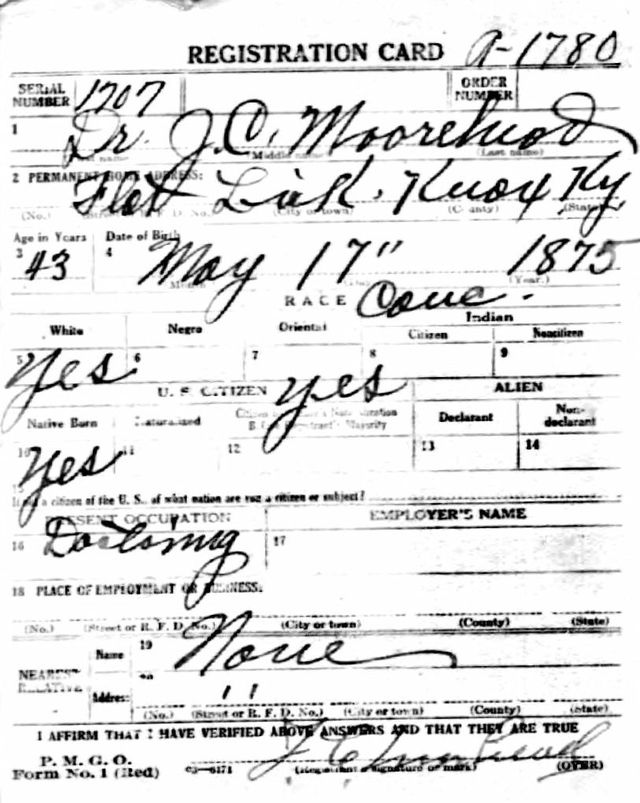 REGISTRATION CARD A-1780
SERIAL NUMBER 1707 ORDER NUMBER
1 Dr. J.C. Moorehead
(Middle name) (Last name)
2 PERMANENT HOME ADDRESS:
Flat Lick. Knox Ky,
(No.) (Street or R. F. D. No.) (City or town) (County) (State)
Age in Years Date of Birth
3 43 4 May 17" 1875
(Year.)
RACE Couc.
White Negro Oriental Indian
Citizen Noncitizen
5 Yes 6 7 8 9
U. S. CITIZEN yes ALIEN
Native Born Naturalized Citizen Declarant Non-declarant
10 Yes 11 12 13 14
15
If not a citizen of the U. S., of what nation are you a citizen or subject?
PRESENT OCCUPATION EMPLOYER'S NAME
16 Doctoring 17
18 PLACE OF EMPLOYMENT OR BUSINESS:
(No.) (Street or R. F. D. No.) (City or town) (County) (State)
NEAREST RELATIVE
Name 19 None
Address 20 "
(No.) (Street or R. F. D. No.) (City or town) (County) (State)
I AFFIRM THAT I HAVE VERIFIED ABOVE ANSWERS AND THAT THEY ARE TRUE
P. M. G. O.
Form No. 1 (Red) 03—6171 J C Moorehead
(Registrant's signature or mark) (OVER)